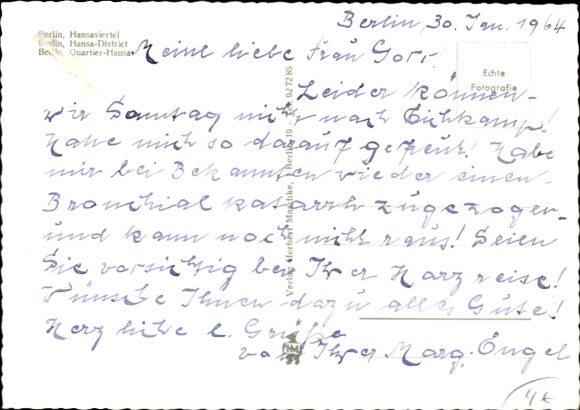 Berlin, 30. Jan. 1964
Berlin, Hansaviertel
Berlin, Hansa-District
Berlin, Quartier-Hansa
Meine liebe Frau
Echte
Fotografie
Leider können
wir Sonntag nicht nach Eichkamp!
Hatte mich so darauf gefreut! Habe
mir bei Bekannten wieder einen
Bronchial katarrh zugezogen
und kann noch nicht raus! Seien
Sie vorsichtig bei Ihrer Harzreise!
Wünsche Ihnen dazu alles Gute!
Herzliche Grüße
von Ihrer Marg. Engel
Verlag Herbert Maschke, Berlin 19 · Tel. 92 72 85
HM
4 €